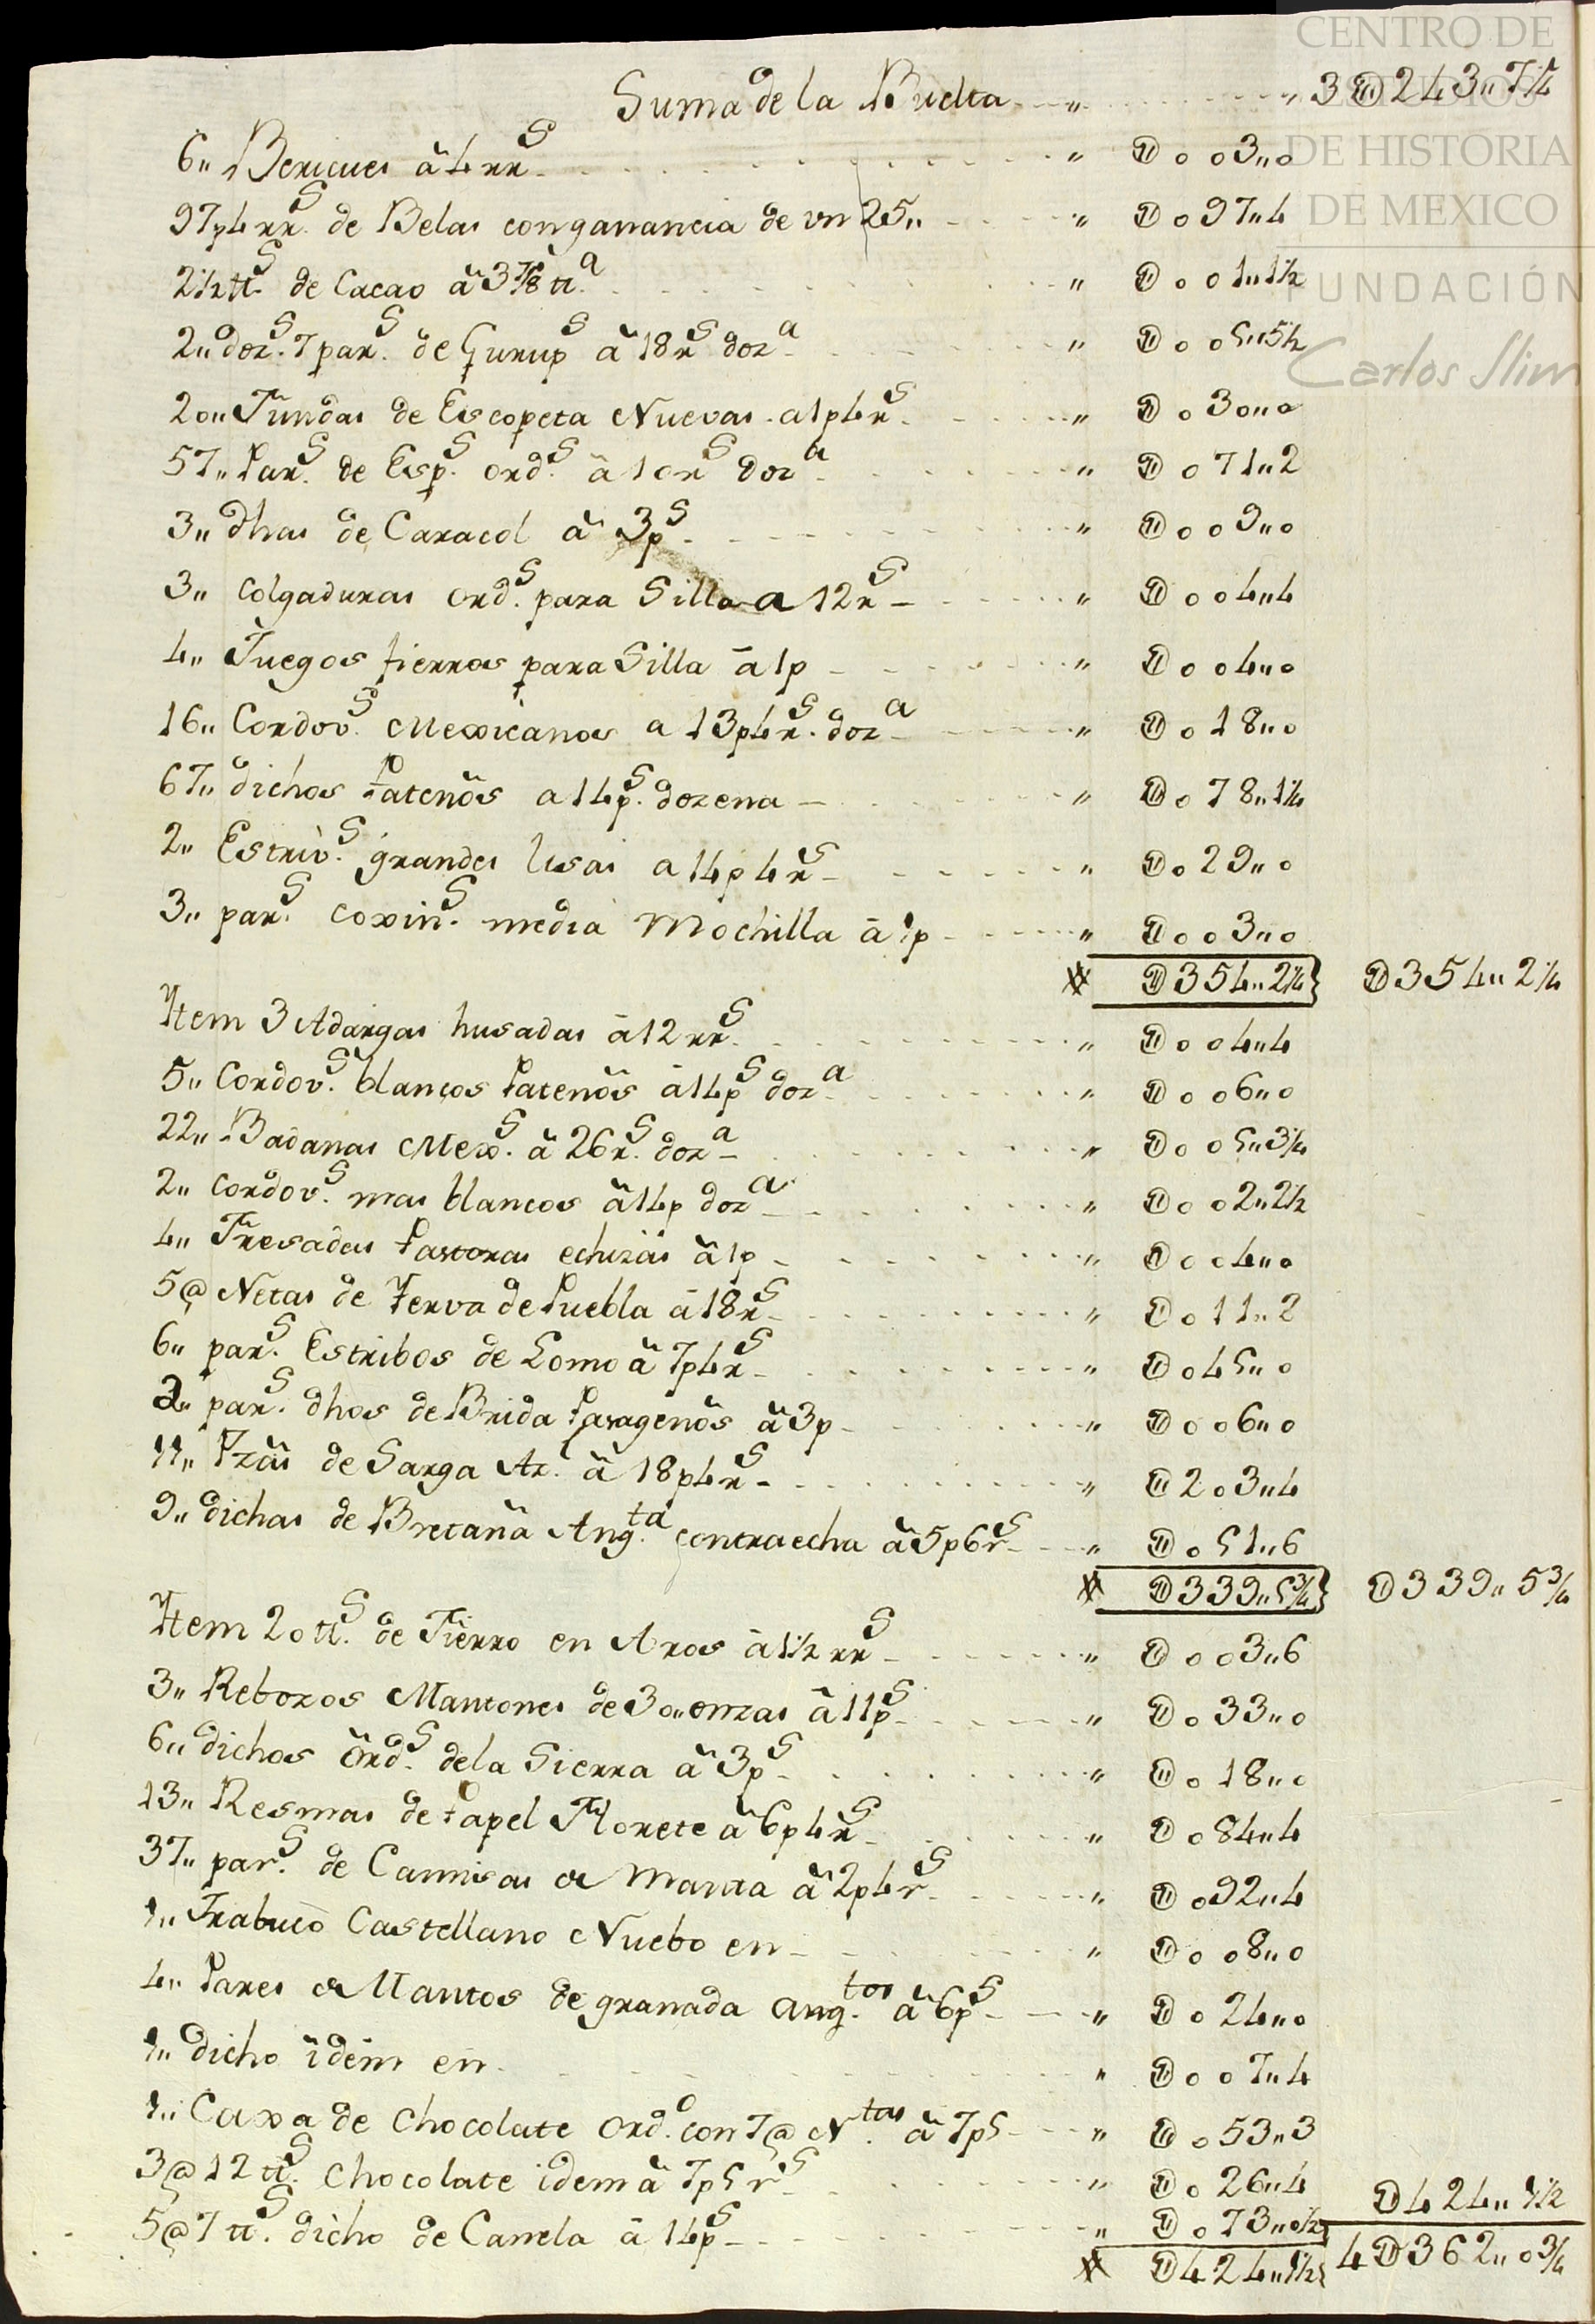 Suma de la Buelta " " 3 U 243 " 7 ¼
6 " Bericues â 4 rrˢ " U 003 " 0
97p 4 rrˢ de Belas con ganancia de vn 25 " " U 097 " 4
2½ ttˢ de Cacao â 3⅞ ttª " U 001 " 1½
2 " dozˢ 7 parˢ de Gurupˢ â 18 rˢ dozª " U 005 " 5½
20 " Fundas de Escopeta Nuevas a 1p 4 rˢ " U 030 " 0
57 " Parˢ de Espˢ ordˢ â 10 rˢ dozª " U 071 " 2
3 " dhas de Caracol â 3pˢ " U 009 " 0
3 " Colgaduras ordˢ para Silla a 12 rˢ " U 004 " 4
4 " Juegos fierros para Silla â 1p " U 004 " 0
16 " Cordovˢ Mexicanos a 13p 4 rˢ dozª " U 018 " 0
67 " dichos Pateños a 14pˢ dozena " U 078 " 1¼
2 " Estrivˢ grandes lisas a 14p 4 rˢ " U 029 " 0
3 " parˢ coxinˢ media Mochilla â 1p " U 003 " 0
U 354 " 2¼ U 354 " 2¼
Ytem 3 Adargas husadas â 12 rrˢ " U 004 " 4
5 " Cordovˢ blancos Pateños â 14pˢ dozª " U 006 " 0
22 " Badanas Mexˢ â 26 rˢ dozª " U 005 " 3¼
2 " Cordovˢ mas blancos â 14p dozª " U 002 " 2½
4 " Fresadas Pastoras echizas â 1p " U 004 " 0
5 @ Netas de Yerva de Puebla â 18 rˢ " U 011 " 2
6 " parˢ Estribos de Lomo â 7p 4 rˢ " U 045 " 0
2 " parˢ dhos de Brida Pasageños â 3p " U 006 " 0
11 " Pzâs de Sarga Az. â 18p 4 rˢ " U 203 " 4
9 " dichas de Bretaña Angᵗᵃ contraecha â 5p 6 rˢ " U 051 " 6
U 339 " 5¾ U 339 " 5¾
Ytem 20 ttˢ de Fierro en Aros â 1½ rrˢ " U 003 " 6
3 " Rebozos Mantones de 30 " onzas â 11pˢ " U 033 " 0
6 " dichos ordˢ de la Sierra â 3pˢ " U 018 " 0
13 " Resmas de Papel Florete â 6p 4 rˢ " U 084 " 4
37 " parˢ de Camisas de Manta â 2p 4 rˢ " U 092 " 4
1 " Trabuco Castellano Nuebo en " U 008 " 0
4 " Pares de Mantos de granada angᵗᵒˢ â 6pˢ " U 024 " 0
1 " dicho idem en " U 007 " 4
1 " Caxa de Chocolate ordº con 7 @ Nᵗᵃˢ â 7p 5 " U 053 " 3
3 @ 12 ttˢ Chocolate idem â 7p 5 rˢ " U 026 " 4
5 @ 7 ttˢ dicho de Canela â 14pˢ " U 073 " 0½ U 424 " 1½
U 424 " 1½ 4 U 362 " 0¾
CENTRO DE
ESTUDIOS
DE HISTORIA
DE MEXICO
FUNDACIÓN
Carlos Slim